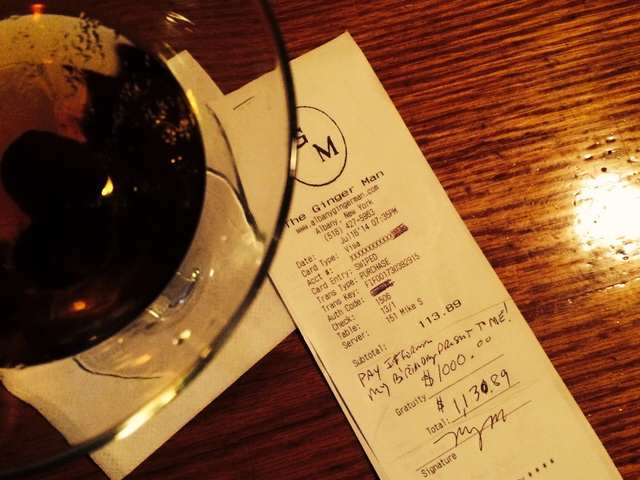 G M
The Ginger Man
www.albanygingerman.com
Albany, New York
(518) 427-5963
Date: Jul16'14 07:35PM
Card Type: Visa
Acct #: XXXXXXXXXXXX
Card Entry: SWIPED
Trans Type: PURCHASE
Trans Key: FIF001730392915
Auth Code:
Check: 1506
Table: 13/1
Server: 151 Mike S
Subtotal: 113.89
PAY IT FORWARD
MY BIRTHDAY PRESENT TO ME!
Gratuity $1000.00
Total: $1,130.89
Signature
****